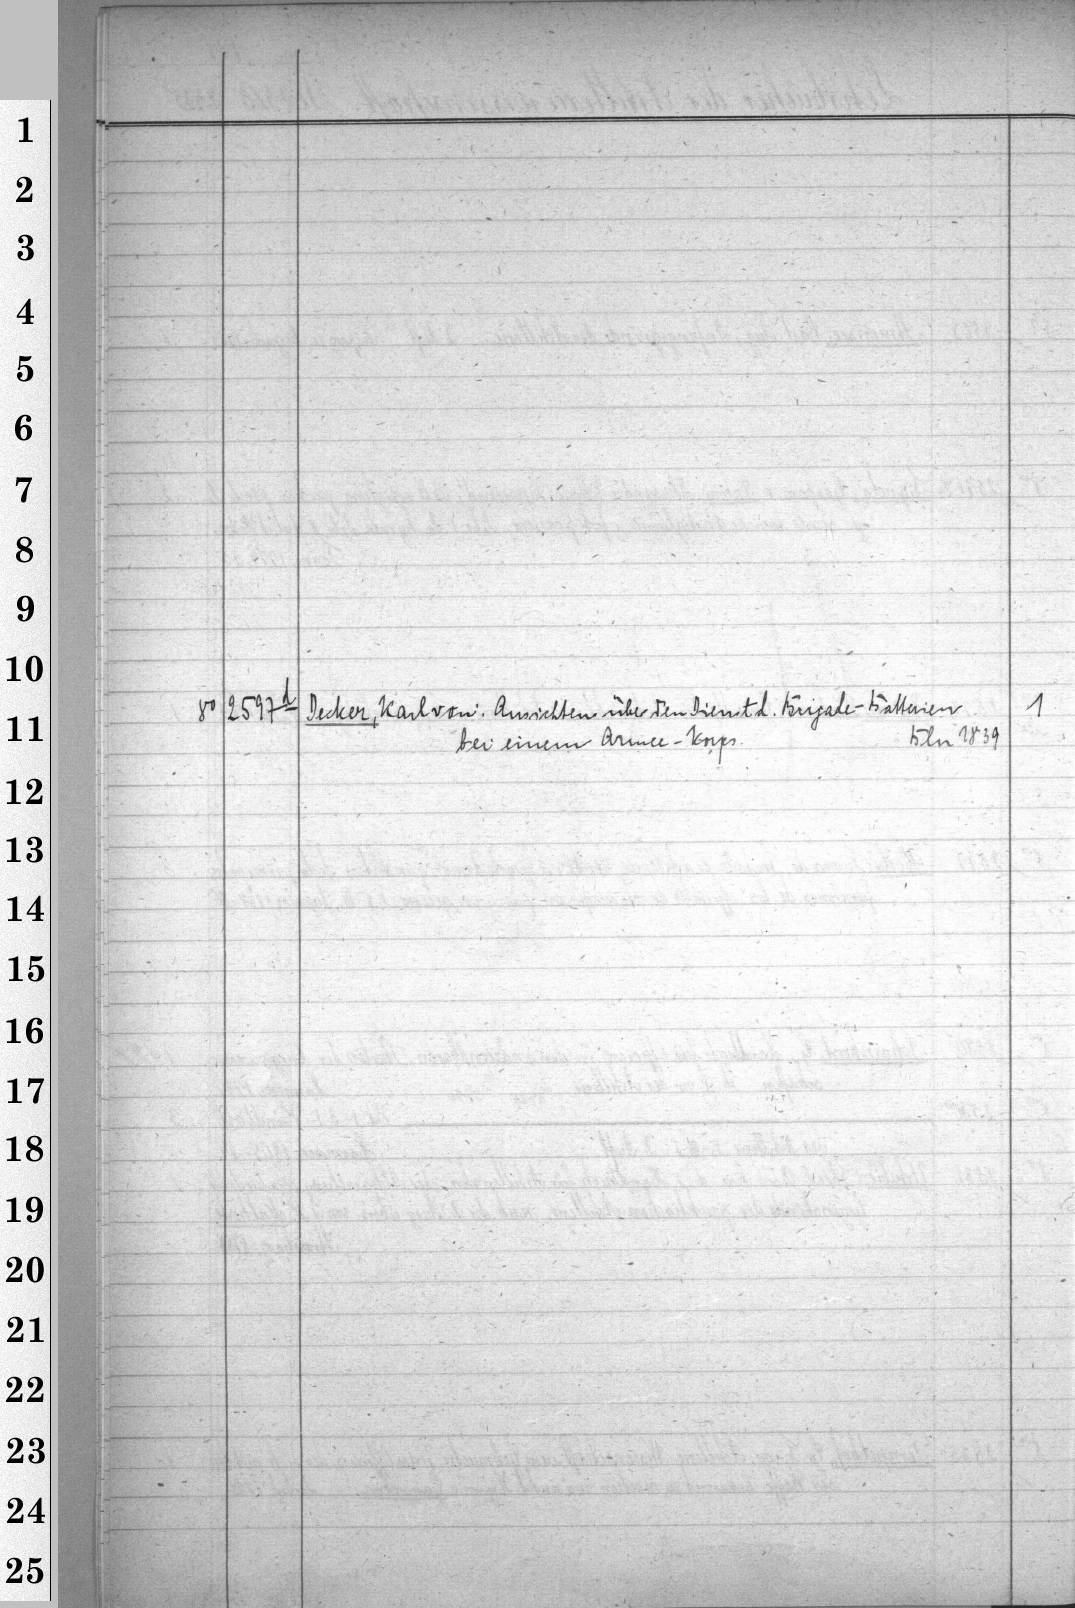 1
2
3
4
5
6
7
8
9
10
8° 2597d Decker, Karl von. Ansichten über den Dienst d. Brigade-Batterien 1
11
bei einem Armee-Korps. Bln 1839
12
13
14
15
16
17
18
19
20
21
22
23
24
25